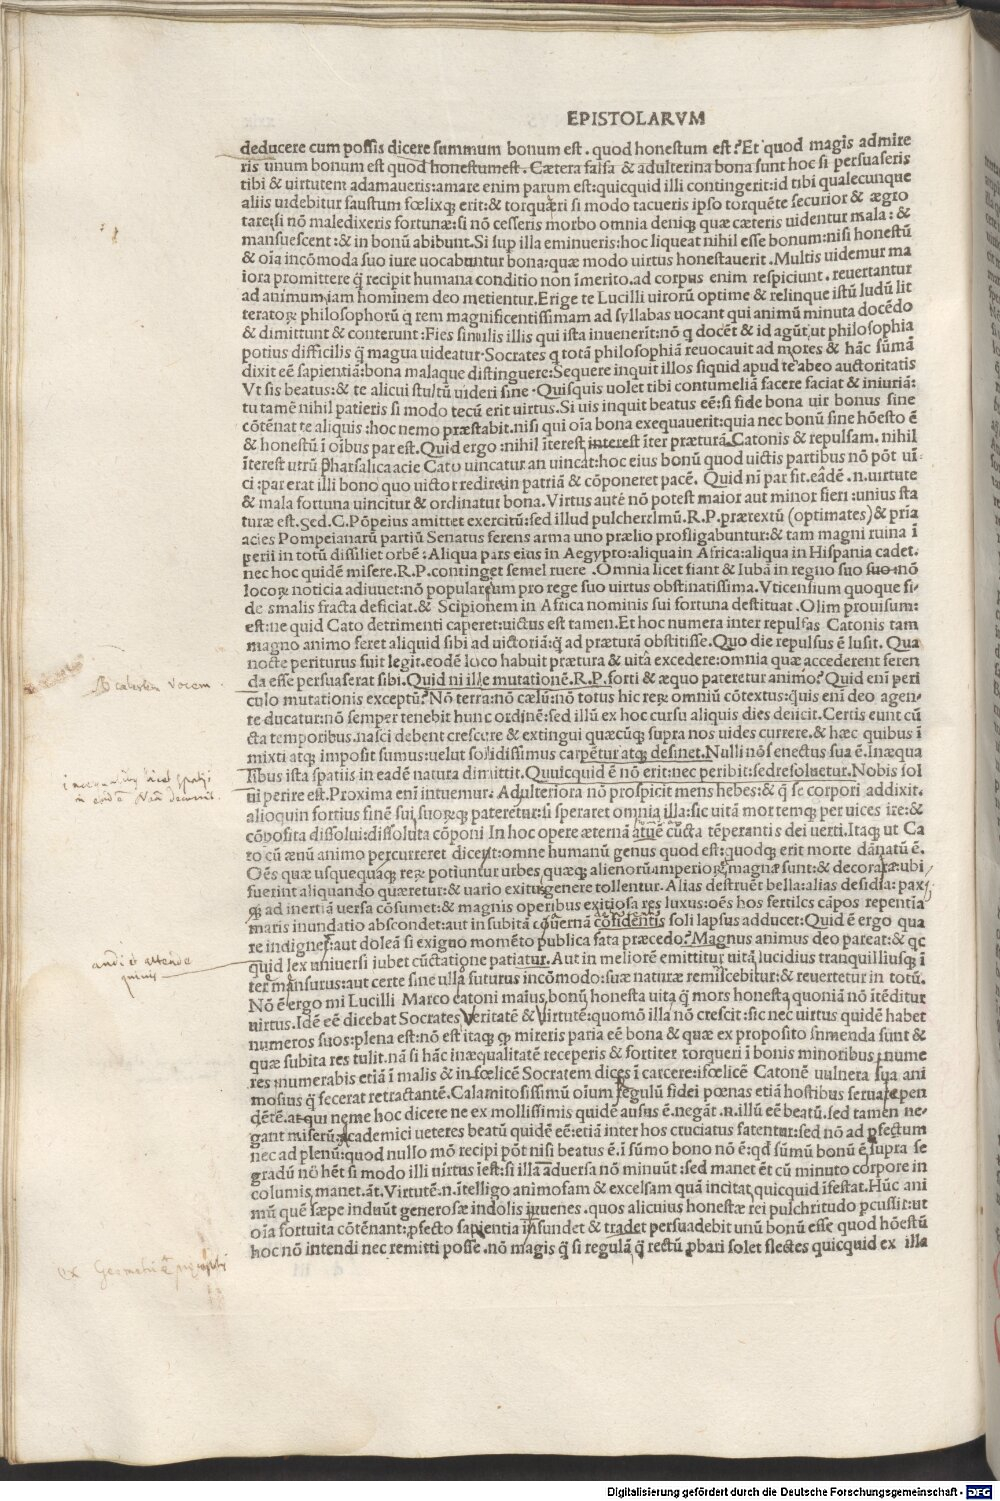 EPISTOLARVM
deducere cum possis dicere summum bonum est. quod honestum est? Et quod magis admire
ris unum bonum est quod honestumest. Cætera falsa & adulterina bona sunt hoc si persuaseris
tibi & uirtutem adamaueris: amare enim parum est: quicquid illi contingerit: id tibi qualecunque
aliis uidebitur faustum fœlixq; erit: & torquæri si modo tacueris ipso torquēte securior & ægro
tare: si nō maledixeris fortunæ: si nō cesseris morbo omnia deniq; quæ cæteris uidentur mala: &
mansuescent: & in bonū abibunt. Si sup illa eminueris: hoc liqueat nihil esse bonum: nisi honestū
& oīa incōmoda suo iure uocabuntur bona: quæ modo uirtus honestauerit. Multis uidemur ma
iora promittere q̄ recipit humana conditio non īmerito. ad corpus enim respiciunt. reuertantur
ad animum: iam hominem deo metientur. Erige te Lucilli uirorū optime & relinque istū ludū lit
teratoꝝ philosophorū q rem magnificentissimam ad syllabas uocant qui animū minuta docēdo
& dimittunt & conterunt: Fies similis illis qui ista inuenerīt: nō q docēt & id agūt, ut philosophia
potius difficilis q̄ magua uideatur. Socrates q totā philosophiā reuocauit ad mores & hāc sūmā
dixit eē sapientiā: bona malaque distinguere: Sequere inquit illos siquid apud te abeo auctoritatis
Vt sis beatus: & te alicui stultū uideri sine. Quisquis uolet tibi contumeliā facere faciat & iniuriā:
tu tamē nihil patieris si modo tecū erit uirtus. Si uis inquit beatus eē: si fide bona uir bonus sine
cōtēnat te aliquis: hoc nemo præstabit. nisi qui oīa bona exequauerit: quia nec bonū sine hōesto ē
& honestū ī oībus par est. Quid ergo: nihil īterest interest īter præturā Catonis & repulsam. nihil
īterest utrū Pharsalica acie Cato uincatur an uincat: hoc eius bonū quod uictis partibus nō pōt uī-
ci: par erat illi bono quo uictor rediret in patriā & cōponeret pacē. Quid nī par sit. eādē .n. uirtute
& mala fortuna uincitur & ordinatur bona. Virtus autē nō potest maior aut minor fieri: unius sta
turæ est. Sed. C. Pōpeius amittet exercitū: sed illud pulcherrImū. R.P. prærextū (optimates) & prīa
acies Pompeianarū partiū Senatus ferens arma uno prælio profligabuntur: & tam magni ruina ī
perii in totū dissiliet orbē: Aliqua pars eius in Aegypto: aliqua in Africa: aliqua in Hispania cadet.
nec hoc quidē misere. R.P. continget semel ruere. Omnia licet fiant & Iubā in regno suo suo nō
locoꝝ noticia adiuuet: nō populareum pro rege suo uirtus obstinatissima. Vticensium quoque fi-
de smalis fracta deficiat. & Scipionem in Africa nominis sui fortuna destituat. Olim prouisum:
est: ne quid Cato detrimenti caperet: uictus est tamen. Et hoc numera inter repulsas Catonis tam
magno animo feret aliquid sibi ad uictoriā: q̄ ad præturā obstitisse. Quo die repulsus ē lusit. Qua
nocte periturus fuit legit. eodē loco habuit prætura & uitā excedere: omnia quæ accederent feren
da esse persuaserat sibi. Quid ni ille mutationē. R.P. forti & æquo pateretur animo? Quid enī peri
culo mutationis exceptū? Nō terra: nō cælū: nō totus hic reꝝ omniū cōtextus: quis enī deo agen-
te ducatur: nō semper tenebit hunc ordinē: sed illū ex hoc cursu aliquis dies deiicit. Certis eunt cū
cta temporibus. nasci debent crescere & extingui quæcūq; supra nos uides currere. & hæc quibus ī
mixti atq; imposit sumus: uelut solidissimus carpētur atq; desinet. Nulli nōs enectus sua ē. Inæqua
libus ista spatiis in eadē natura dimittit. Quuicquid ē nō erit: nec peribit: sedresoluetur. Nobis sol
ui perire est. Proxima enī intuemur: Adulteriora nō prospicit mens hebes: & q̄ se corpori addixit.
alioquin fortius finē sui suoꝝq; pateretur: si speraret omnia illa: sic uitā mortemq; per uices ire: &
cōposita dissolui: dissoluta cōponi In hoc opere æternā atuē cūcta tēperantis dei uerti. Itaq; ut Ca
to cū æuū animo percurreret dicent: omne humanū genus quod est: quodq; erit morte dānatū ē.
Oēs quæ usquequāq; reꝝ potiuntur urbes quæq; alienorū imperioꝝ magnæ sunt: & decora: ubi
fuerint aliquando quæretur: & uario exitu genere tollentur. Alias destruēt bella: alias desidia: pax
q; ad inertiā uersa cōsumet: & magnis operibus exitiosa res luxus: oēs hos fertilcs cāpos repentia
maris inundatio abscondet: aut in subitā couernā cōsidentis soli lapsus adducet: Quid ē ergo qua
re indigner: aut doleā si exiguo momēto publica fata præcedo? Magnus animus deo pareat: & qc
quid lex uniuersi iubet cūctatione patiatur. Aut in meliorē emittitur uitā lucidius tranquilliusq; ī
ter mansurus: aut certe sine ulla futurus incōmodo: suæ naturæ remiscebitur: & reuertetur in totū.
Nō ē ergo mi Lucilli Marco catoni maius bonū honesta uita q̄ mors honesta quoniā nō ītēditur
uirtus. Idē eē dicebat Socrates Veritatē & Virtutē: quomō illa nō crescit: sic nec uirtus quidē habet
numeros suos: plena est: nō est itaq; q; mireris paria eē bona & quæ ex proposito sumenda sunt &
quæ subita res tulit. nā si hāc inæqualitatē receperis & fortiter torqueri ī bonis minoribus: nume
res: numerabis etiā ī malis & in fœlicē Socratem dices ī carcere: ifœlicē Catonē uulnera sua ani
mosius q̄ fecerat retractantē. Calamitosissimū oīum regulū fidei pœnas etiā hostibus seruatæ pen
dētē. at qui neme hoc dicere ne ex mollissimis quidē ausus ē. negāt .n. illū eē beatū. sed tamen ne-
gant miserū: Academici ueteres beatū quidē eē: etiā inter hos cruciatus fatentur: sed nō ad pfectum
nec ad plenū: quod nullo mō recipi pōt nisi beatus ē. ī sūmo bono nō ē: qd sūmū bonū ē supra se
gradū nō hēt si modo illi uirtus īest: si illā aduersa nō minuūt: sed manet ēt cū minuto corpore in
columis manet. āt. Virtutē .n. ītelligo animosam & excelsam quā incitat quicquid īfestat. Hūc ani
mū quē sæpe induūt generosæ indolis iuuenes. quos alicuius honestæ rei pulchritudo pcussit: ut
oīa fortuita cōtēnant: pfecto sapientia insundet & tradet persuadebit unū bonū esse quod hōestū
hoc nō intendi nec remitti posse. nō magis q̄ si regulā q̄ rectū pbari solet flectes quicquid ex illa
vocem